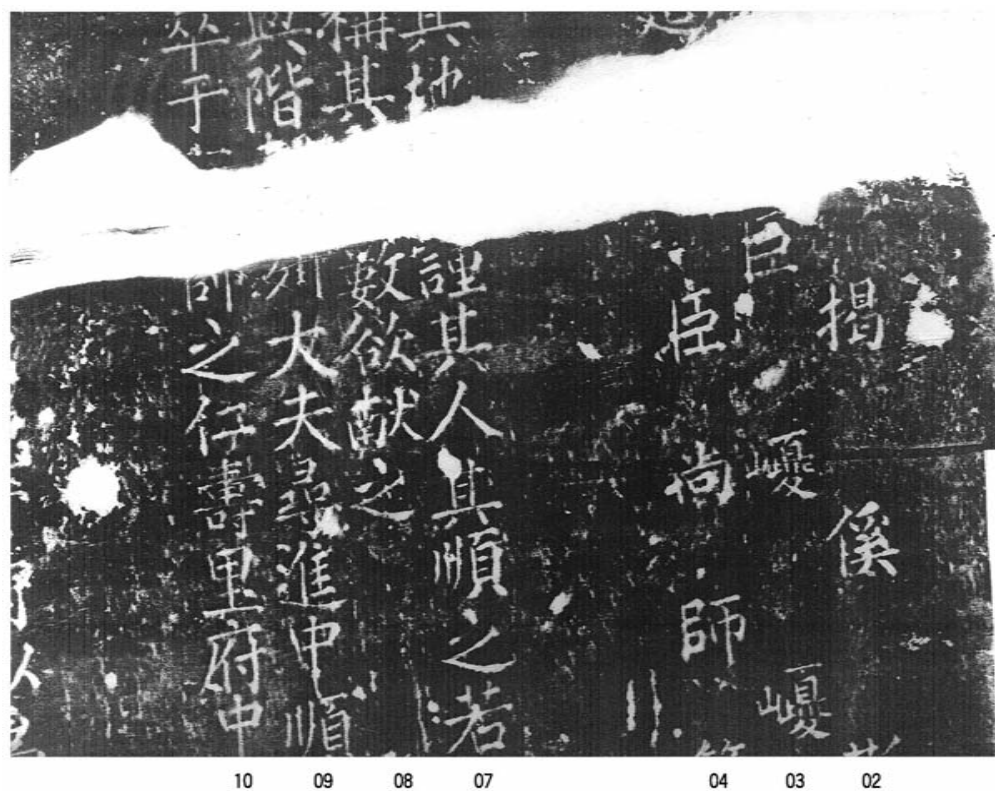 揭傒
臣巎巎
臣尚師
其地誣其人其順之若
稱其數欲献之
與階列大夫尋進中順
卒于師之仁壽里府中
10 09 08 07 04 03 02